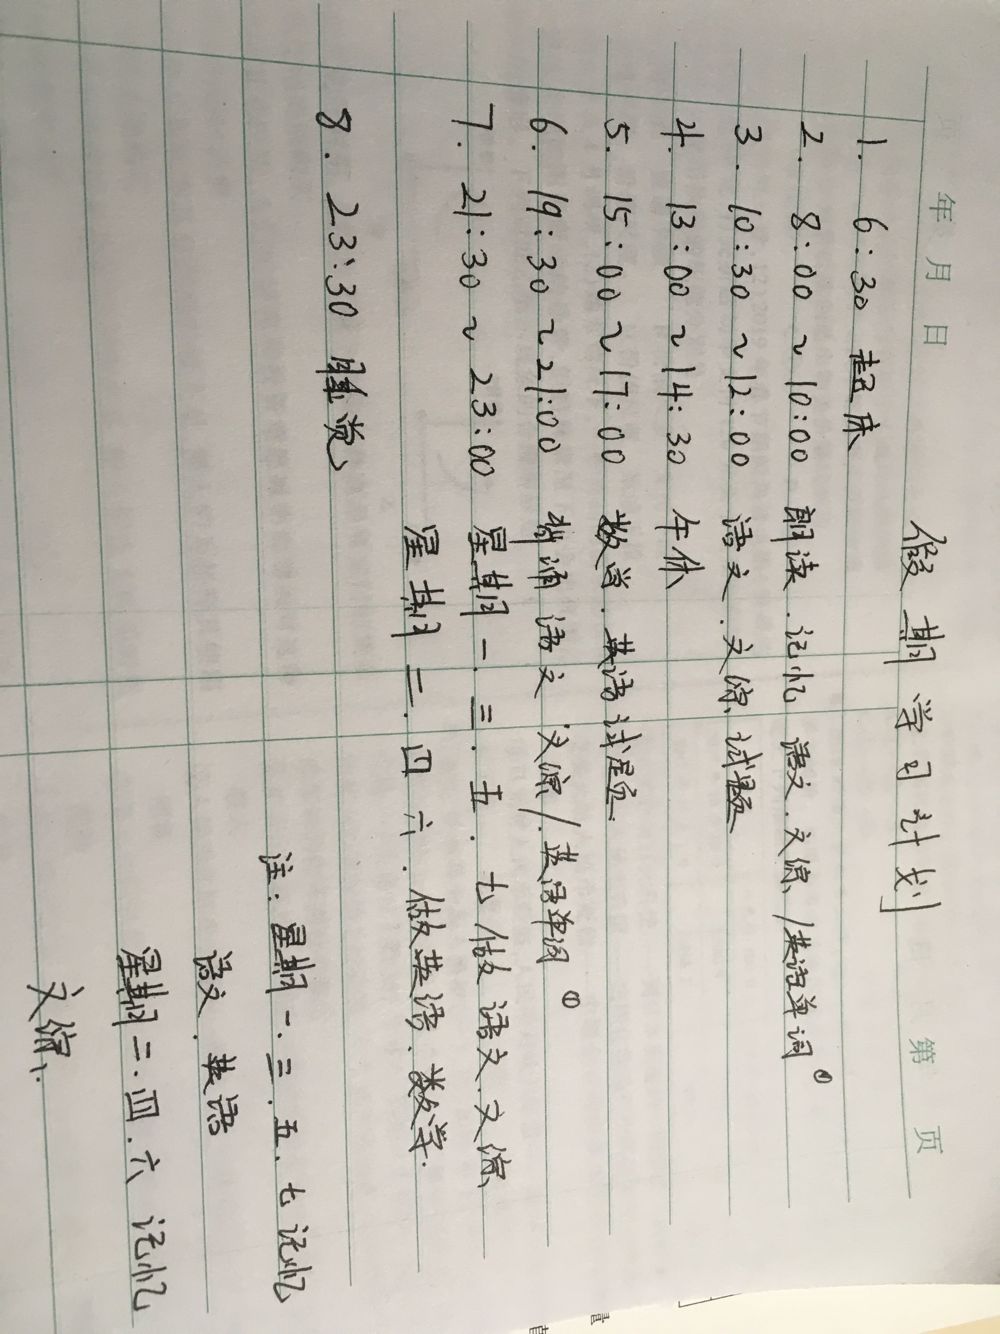 年 月 日 第 页
假期学习计划
1. 6:30 起床
2. 8:00~10:00 朗读.记忆 语文.文综、/英语单词①
3. 10:30~12:00 语文.文综、试题
4. 13:00~14:30 午休
5. 15:00~17:00 数学.英语试题
6. 19:30~21:00 背诵 语文.文综/.英语单词①
7. 21:30~23:00 星期一.三.五.七做语文.文综、
星期二.四六.做英语.数学.
8. 23:30 睡觉
注:星期一.三.五.七记忆
语文.英语
星期二.四.六 记忆
文综、